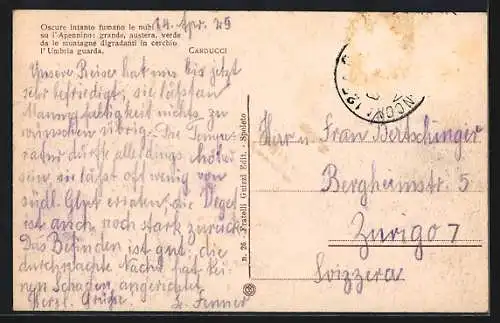 Oscure intanto fumano le nubi
su l'Apennino: grande, austera, verde
da le montagne digradanti in cerchio
l'Umbria guarda. CARDUCCI
14. Apr. 29
Unsere Reise hat uns bis jetzt
sehr befriedigt; sie lässt an
Mannigfaltigkeit nichts zu
wünschen übrig. Die Tempe-
ratur dürfte allerdings höher
sein, sie lässt oft wenig von
südl. Glut erraten; die Veget.
ist auch noch stark zurück.
Das Befinden ist gut; die
durchwachte Nacht hat kei-
nen Schaden angerichtet.
Herzl. Grüsse
n. 26 - Fratelli Guizzi Edit. - Spoleto
Herr u Frau Bertschinger
Bergheimstr. 5
Zurigo 7
Svizzera